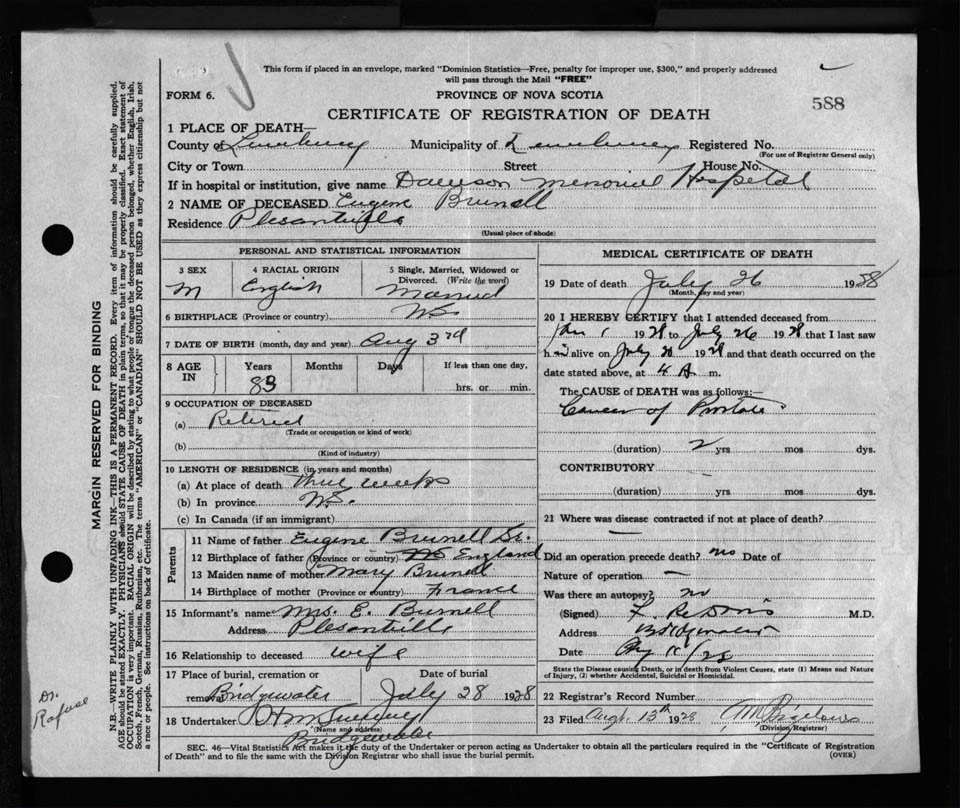 This form if placed in an envelope, marked "Dominion Statistics—Free, penalty for improper use, $300," and properly addressed
will pass through the Mail "FREE"
FORM 6. PROVINCE OF NOVA SCOTIA
588
CERTIFICATE OF REGISTRATION OF DEATH
1 PLACE OF DEATH—
County of Lunenburg Municipality of Lunenburg Registered No.
(For use of Registrar General only)
City or Town Street House No.
If in hospital or institution, give name Dawson Memorial Hospital
2 NAME OF DECEASED Eugene Brunell
Residence Plesantville
(Usual place of abode)
PERSONAL AND STATISTICAL INFORMATION
3 SEX 4 RACIAL ORIGIN 5 Single, Married, Widowed or
Divorced. (Write the word)
M English Married
6 BIRTHPLACE (Province or country) N.S.
7 DATE OF BIRTH (month, day and year) Aug 3rd
8 AGE IN Years Months Days If less than one day,
83 hrs. or min.
9 OCCUPATION OF DECEASED
(a) Retired
(Trade or occupation or kind of work)
(b)
(Kind of industry)
10 LENGTH OF RESIDENCE (in years and months)
(a) At place of death three weeks
(b) In province N.S.
(c) In Canada (if an immigrant)
Parents
11 Name of father Eugene Brunell Sr.
12 Birthplace of father (Province or country) England
13 Maiden name of mother Mary Brunell
14 Birthplace of mother (Province or country) France
15 Informant's name Mrs. E. Burnell
Address Plesantville
16 Relationship to deceased wife
17 Place of burial, cremation or Date of burial
removal Bridgewater July 28 1928
18 Undertaker
(Name and address)
Bridgewater
MEDICAL CERTIFICATE OF DEATH
19 Date of death July 26 1928
(Month, day and year)
20 I HEREBY CERTIFY that I attended deceased from
Jan 1 1928 to July 26 1928 that I last saw
him alive on July 20 1928 and that death occurred on the
date stated above, at 4 A m.
The CAUSE of DEATH was as follows:—
Cancer of Prostate
(duration) 2 yrs mos dys.
CONTRIBUTORY
(duration) yrs. mos. dys.
21 Where was disease contracted if not at place of death?
Did an operation precede death? no Date of
Nature of operation —
Was there an autopsy? no
(Signed) M.D.
Address Bridgewater
Date
State the Disease causing Death, or in death from Violent Causes, state (1) Means and Nature
of Injury, (2) whether Accidental, Suicidal or Homicidal.
22 Registrar's Record Number
23 Filed Augt. 13th 1928
(Division Registrar)
SEC. 46—Vital Statistics Act makes it the duty of the Undertaker or person acting as Undertaker to obtain all the particulars required in the "Certificate of Registration
of Death" and to file the same with the Division Registrar who shall issue the burial permit. (OVER)
MARGIN RESERVED FOR BINDING
N.B.—WRITE PLAINLY WITH UNFADING INK—THIS IS A PERMANENT RECORD. Every item of information should be carefully supplied.
AGE should be stated EXACTLY. PHYSICIANS should STATE CAUSE OF DEATH in plain terms, so that it may be properly classified. Exact statement of
OCCUPATION is very important. RACIAL ORIGIN will be described by stating to what people or tongue the deceased person belonged, whether English, Irish,
Scotch, French, German, Russian, Ruthenian, etc. The terms "AMERICAN" or "CANADIAN" SHOULD NOT BE USED as they express citizenship but not
a race or people. See instructions on back of Certificate.
Dr.
Rafuse